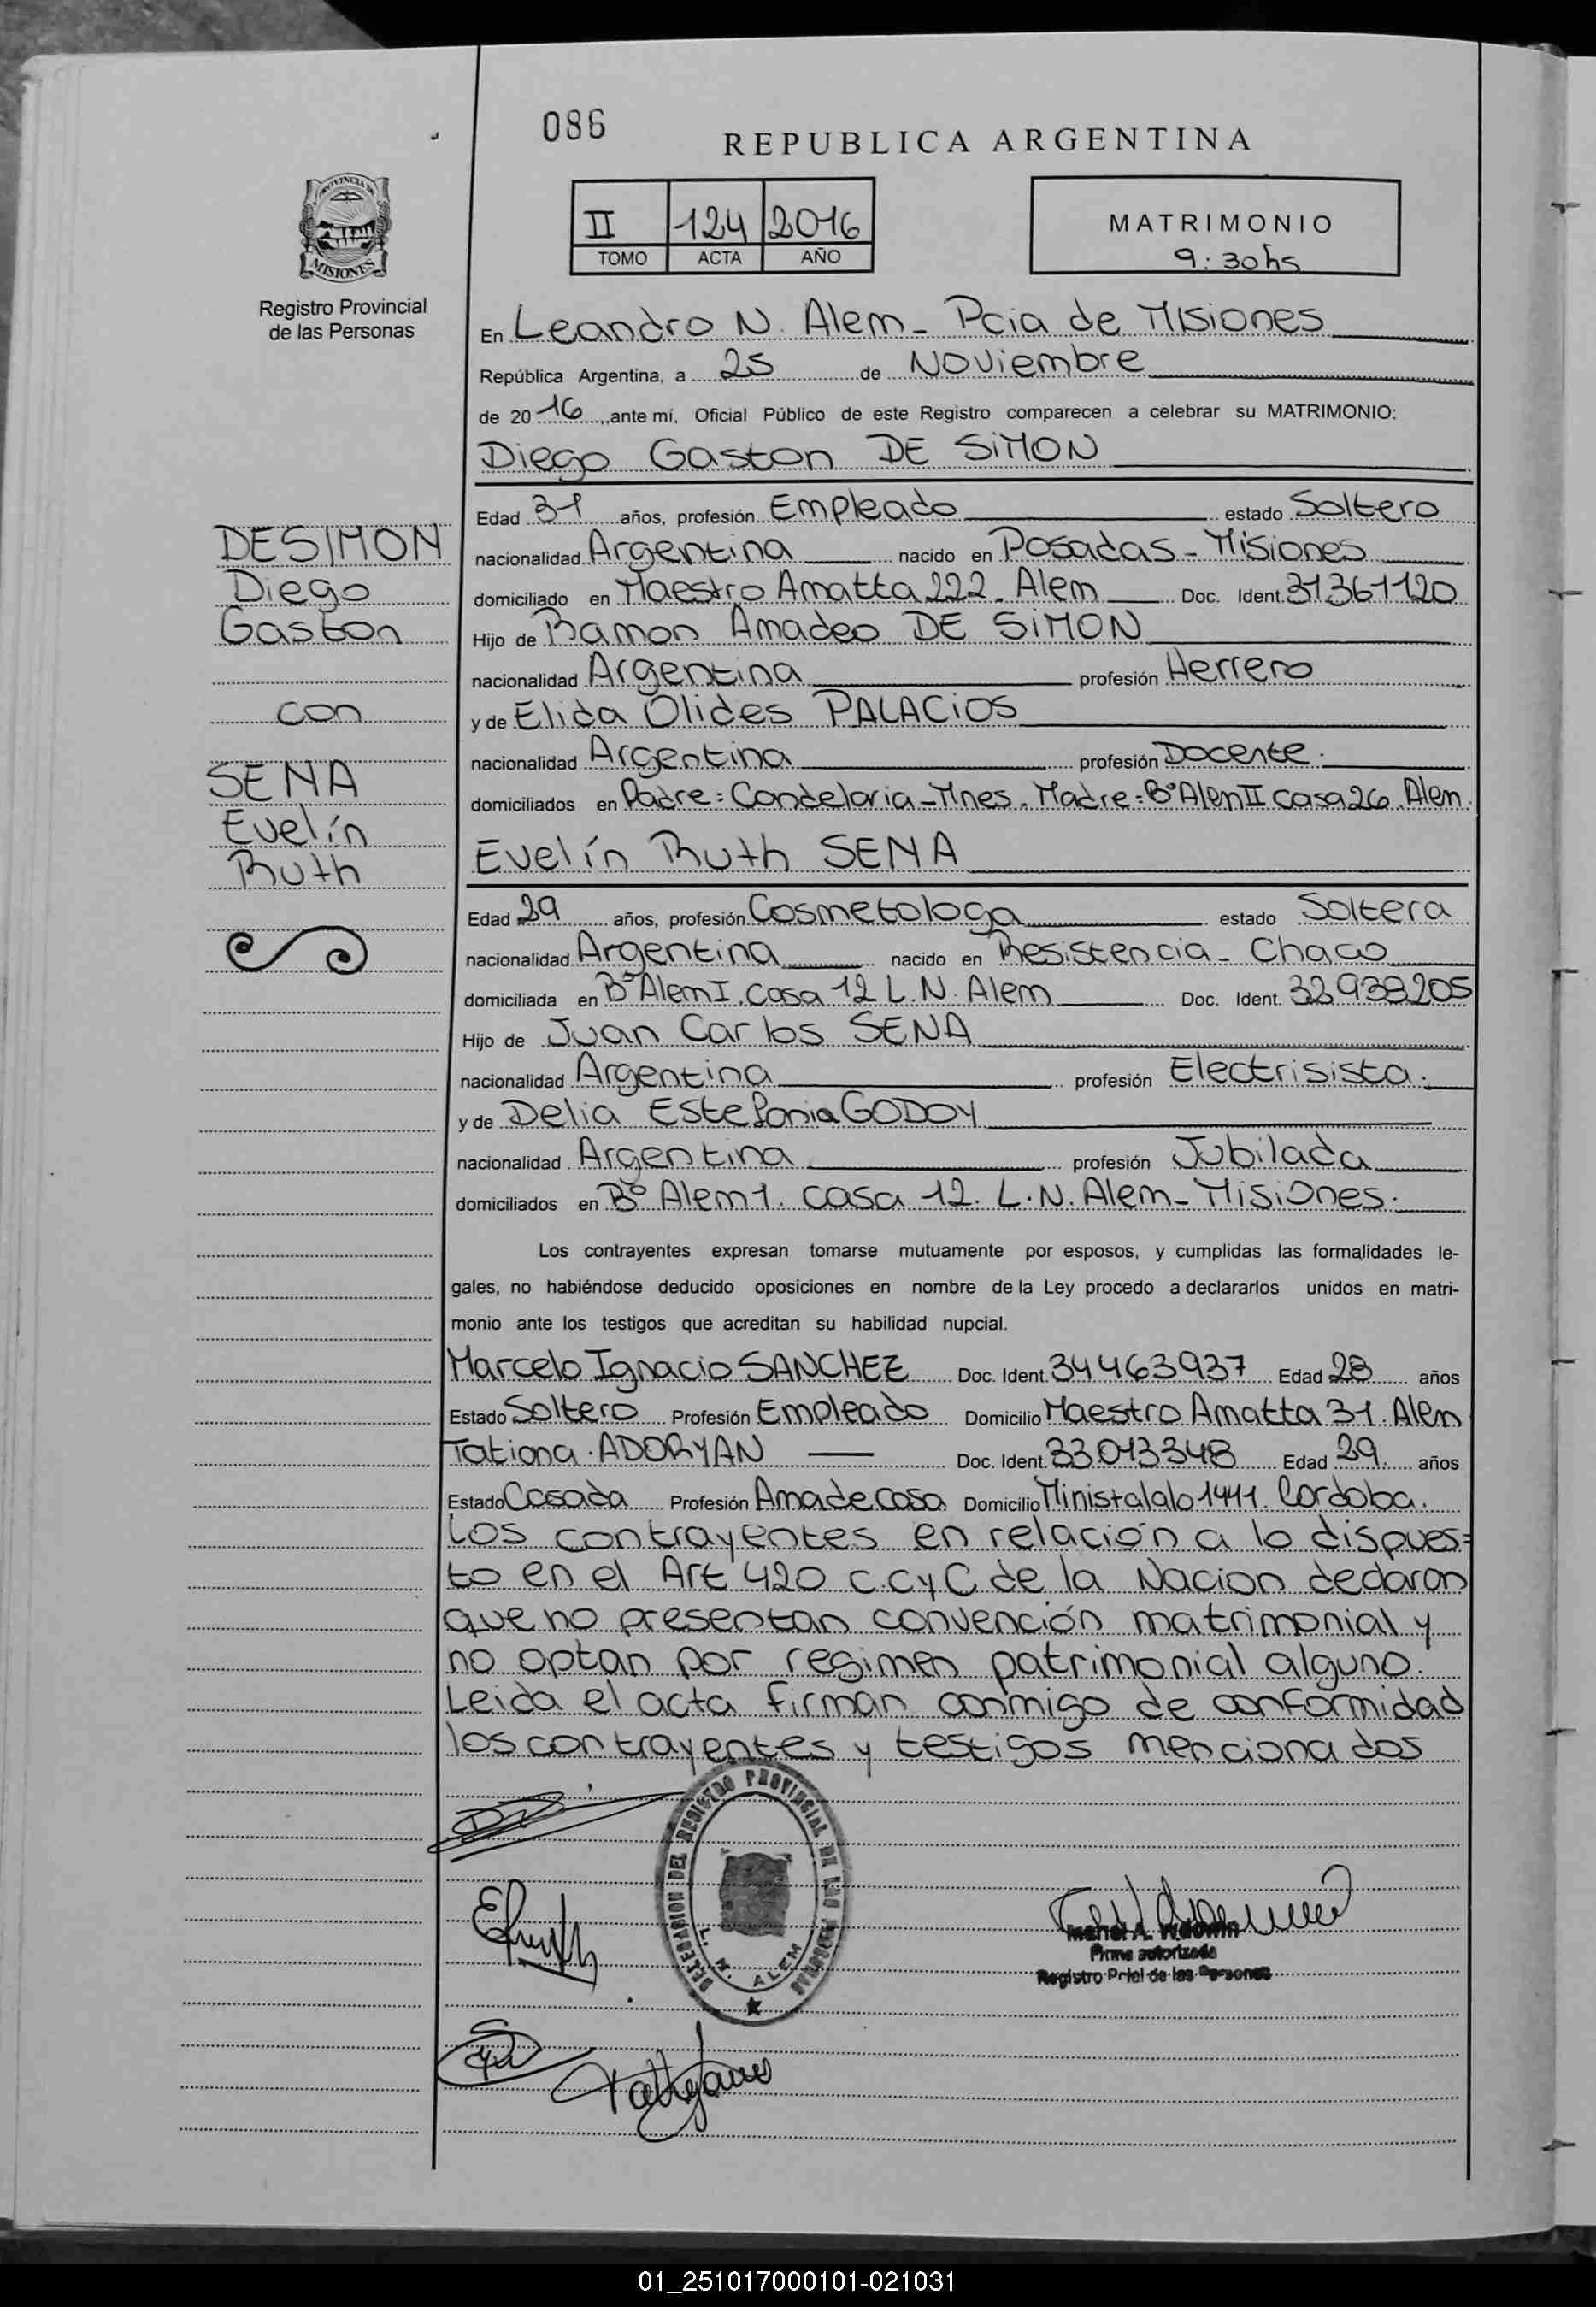 086
REPUBLICA ARGENTINA
II 124 2016
TOMO ACTA AÑO
MATRIMONIO
9:30hs
PROVINCIA DE
MISIONES
Registro Provincial
de las Personas
En Leandro N. Alem - Pcia de Misiones
República Argentina, a 25 de Noviembre
de 2016, ante mí, Oficial Público de este Registro comparecen a celebrar su MATRIMONIO:
Diego Gaston DE SiMON
Edad 31 años, profesión Empleado estado Soltero
nacionalidad Argentina nacido en Posadas - Misiones
domiciliado en Maestro Amatta 222. Alem Doc. Ident. 31361120
Hijo de Ramon Amadeo DE SiMON
nacionalidad Argentina profesión Herrero
y de Elida Olides PALACiOS
nacionalidad Argentina profesión Docente.
domiciliados en Padre: Candelaria - Mnes. Madre: Bº Alem II casa 26. Alem.
DESIMON
Diego
Gaston
con
SENA
Evelín
Ruth
Evelín Ruth SENA
Edad 29 años, profesión Cosmetologa estado Soltera
nacionalidad Argentina nacido en Resistencia - Chaco
domiciliada en Bº Alem I. casa 12 L.N. Alem Doc. Ident. 32938205
Hijo de Juan Carlos SENA
nacionalidad Argentina profesión Electrisista.
y de Delia Estefania GODOY
nacionalidad Argentina profesión Jubilada
domiciliados en Bº Alem 1. casa 12. L.N. Alem - Misiones.
Los contrayentes expresan tomarse mutuamente por esposos, y cumplidas las formalidades le-
gales, no habiéndose deducido oposiciones en nombre de la Ley procedo a declararlos unidos en matri-
monio ante los testigos que acreditan su habilidad nupcial.
Marcelo Ignacio SANCHEZ Doc. Ident. 34463937 Edad 28 años
Estado Soltero Profesión Empleado Domicilio Maestro Amatta 31. Alem
Tatiana ADORYAN Doc. Ident. 33013348 Edad 29. años
Estado Casada Profesión Ama de casa Domicilio Ministalalo 1411. Cordoba.
Los contrayentes en relación a lo dispues=
to en el Art 420 C.C y C de la Nacion declaran
que no presentan convención matrimonial y
no optan por regimen patrimonial alguno.
Leida el acta firman conmigo de conformidad
los contrayentes y testigos mencionados
DELEGACION DEL REGISTRO PROVINCIAL DE LAS PERSONAS
L. N. ALEM
Firma autorizada
Registro Prial de las Personas
01_251017000101-021031